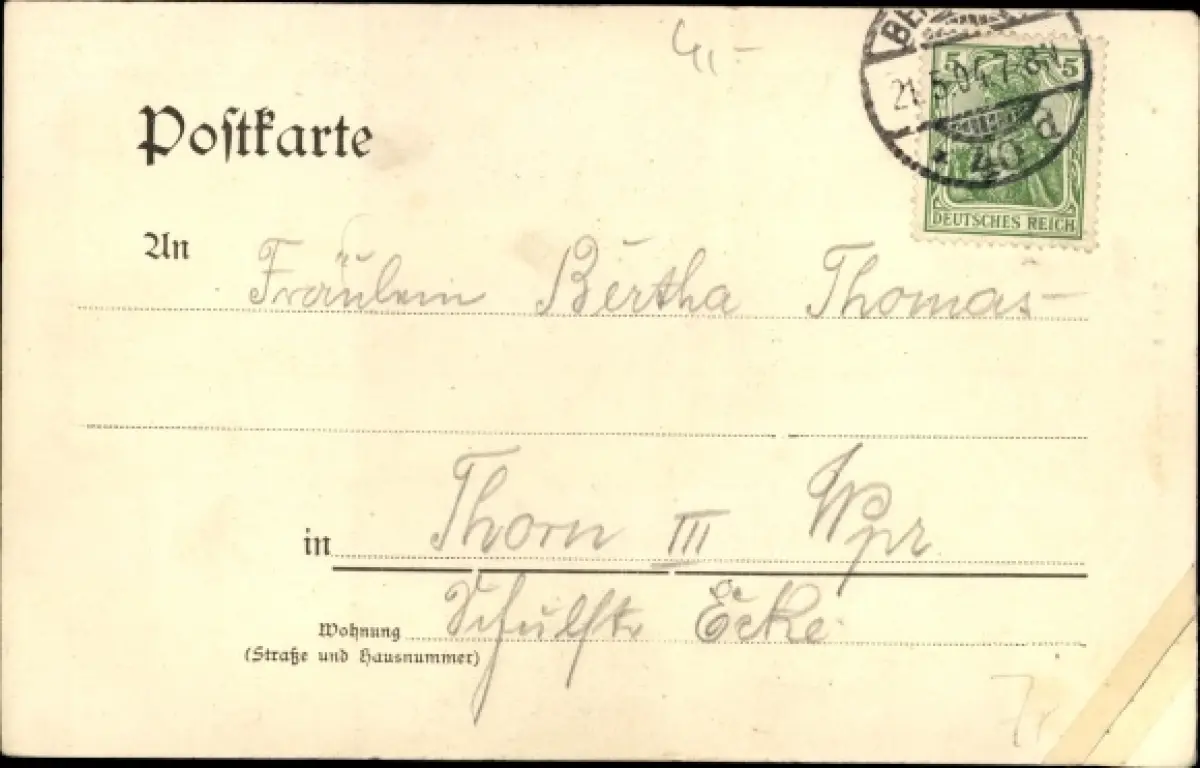 4,-
5 5
21.5.04. 7-8N
* 40 d
DEUTSCHES REICH
Poſtkarte
An Fräulein Bertha Thomas-
in Thorn III Wpr
Wohnung Schulſtr Ecke
(Straße und Hausnummer)